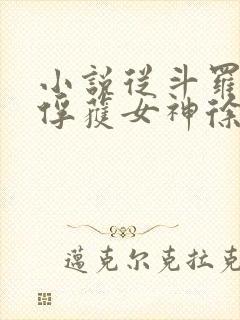 小説從斗羅
俘獲女神徐
邁克尔克拉克